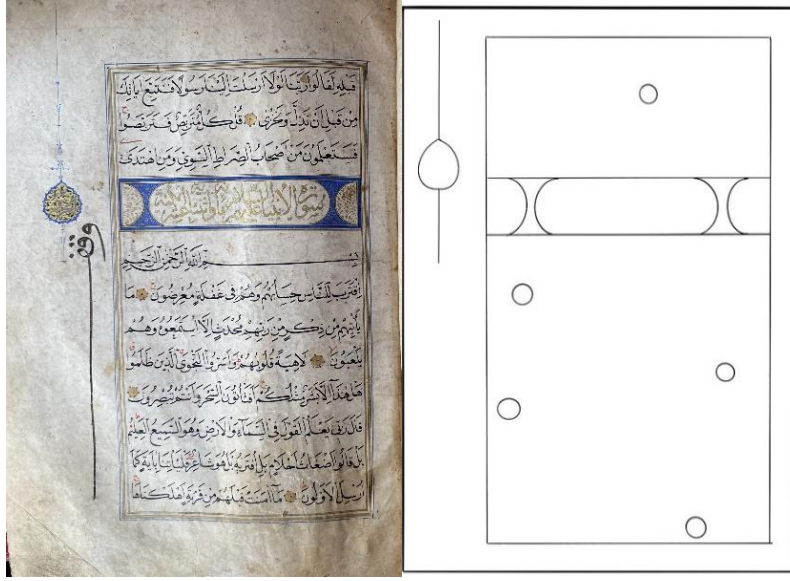 قبله لقالوا ربنا لولا ارسلت الينا رسولا فنتبع اياتك
من قبل ان نذل ونخزى قل كل متربص فتربصوا
فستعلمون من اصحاب الصراط السوي ومن اهتدى
سورة الانبياء
وقف
بسم الله الرحمن الرحيم
اقترب للناس حسابهم وهم في غفلة معرضون ما
يأتيهم من ذكر من ربهم محدث الا استمعوه وهم
يلعبون لاهية قلوبهم واسروا النجوى الذين ظلموا
هل هذا الا بشر مثلكم افتأتون السحر وانتم تبصرون
قال ربي يعلم القول في السماء والارض وهو السميع العليم
بل قالوا اضغاث احلام بل افتريه بل هو شاعر فليأتنا باية كما
ارسل الاولون ما امنت قبلهم من قرية اهلكناها